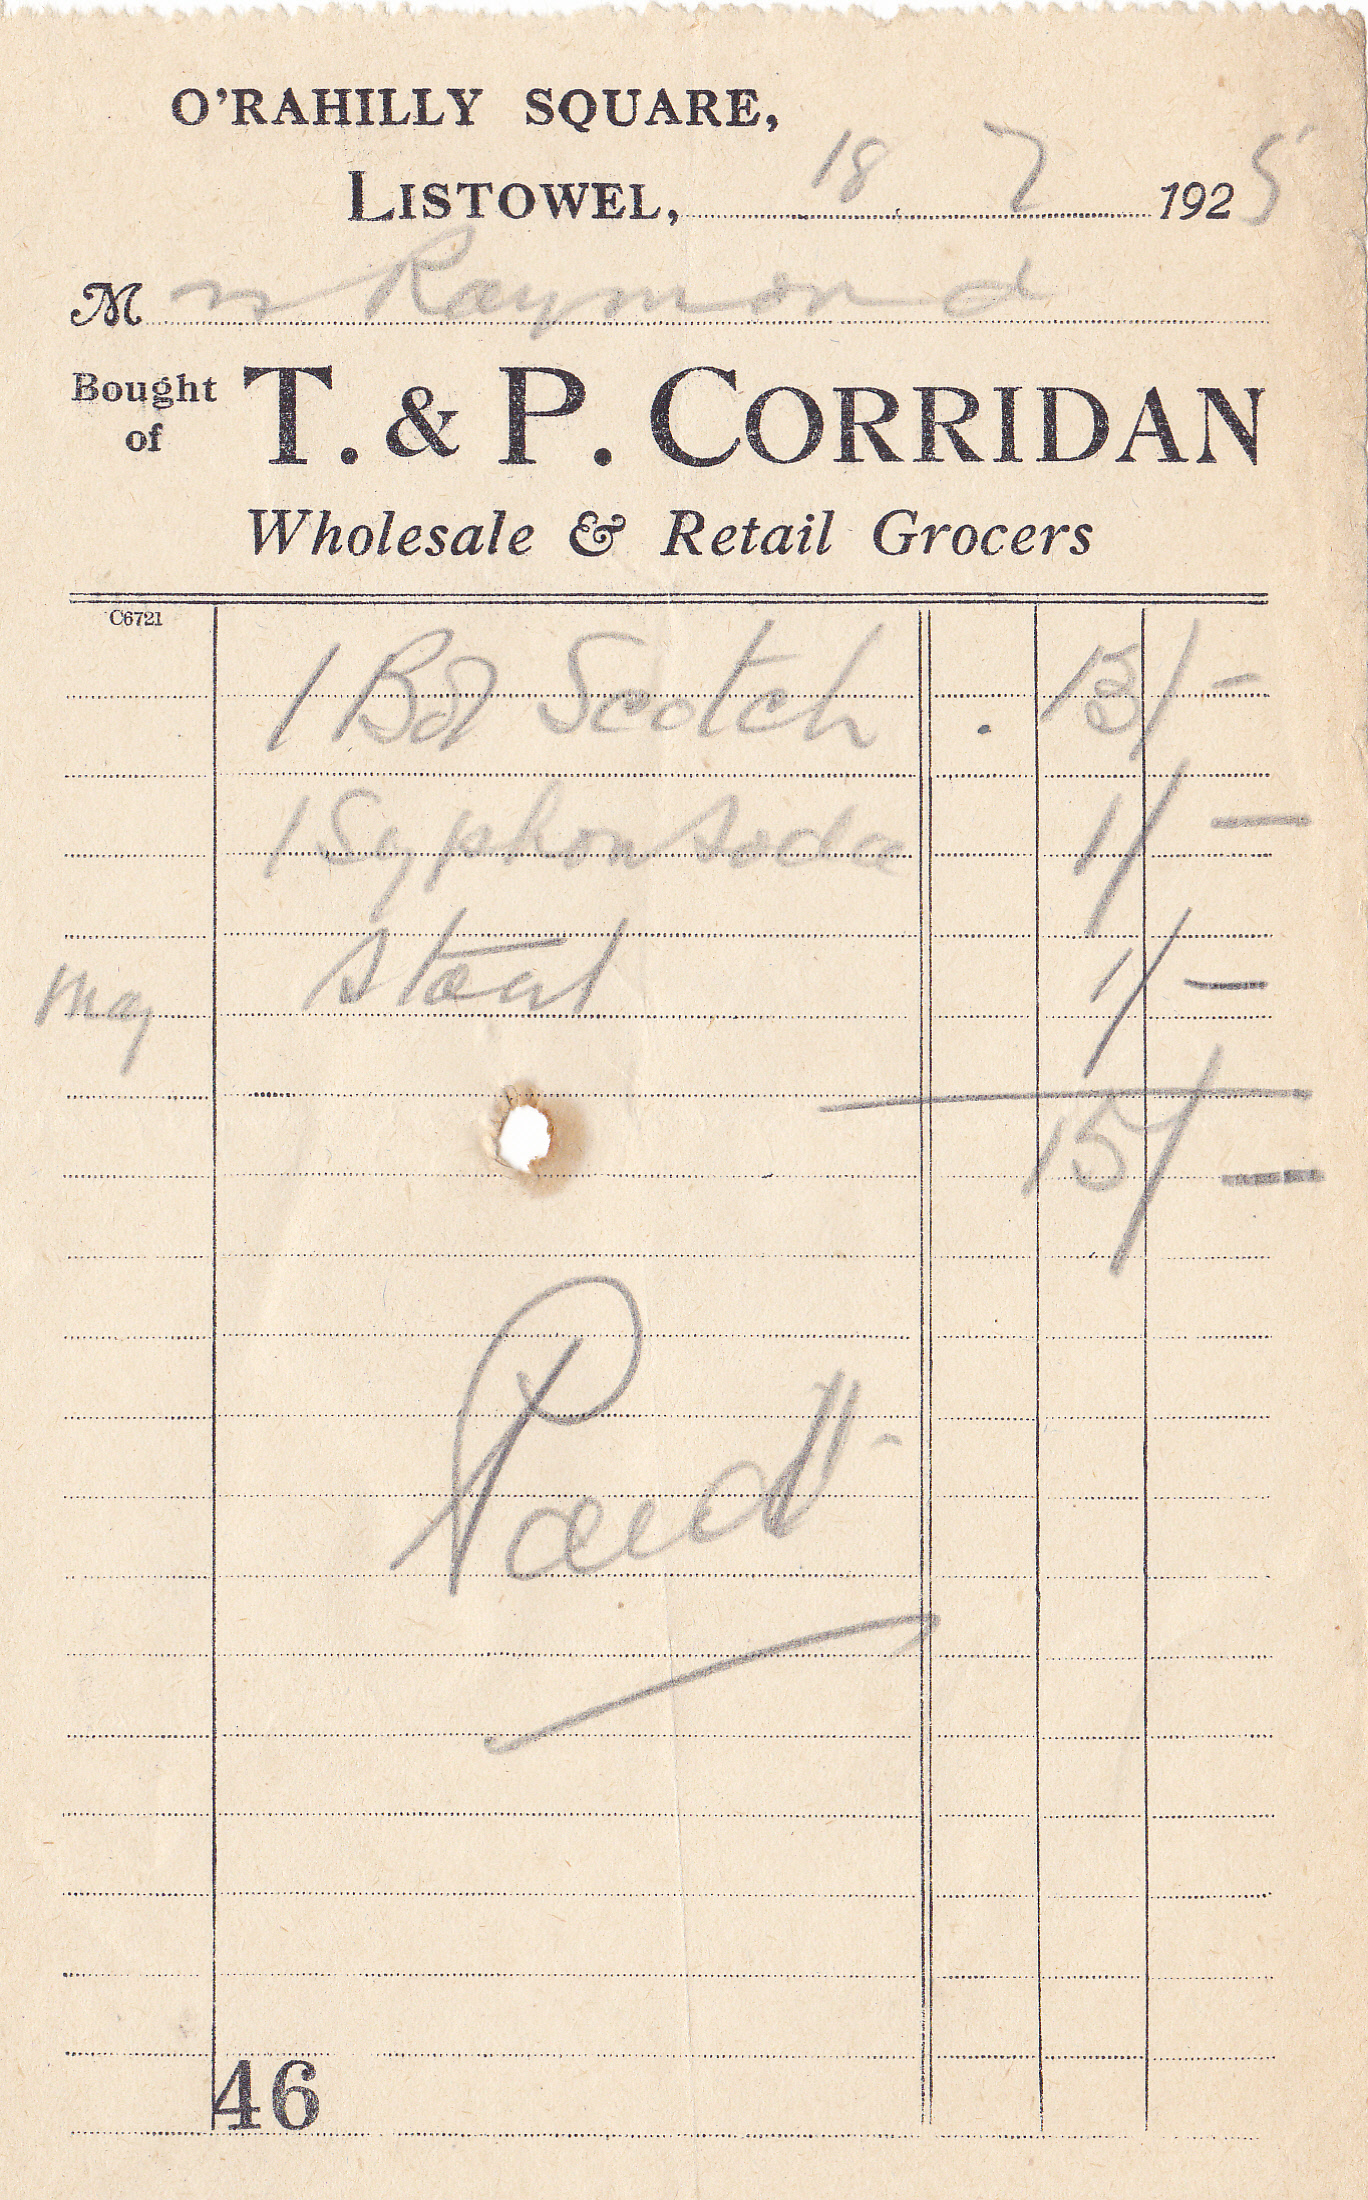 O'RAHILLY SQUARE,
LISTOWEL, 18 7 1925
M r Raymond
Bought of T. & P. CORRIDAN
Wholesale & Retail Grocers
C6721
1 Bot Scotch 13/-
1 Syphon Soda 1/-
May Stout 1/-
15/-
Paid
46